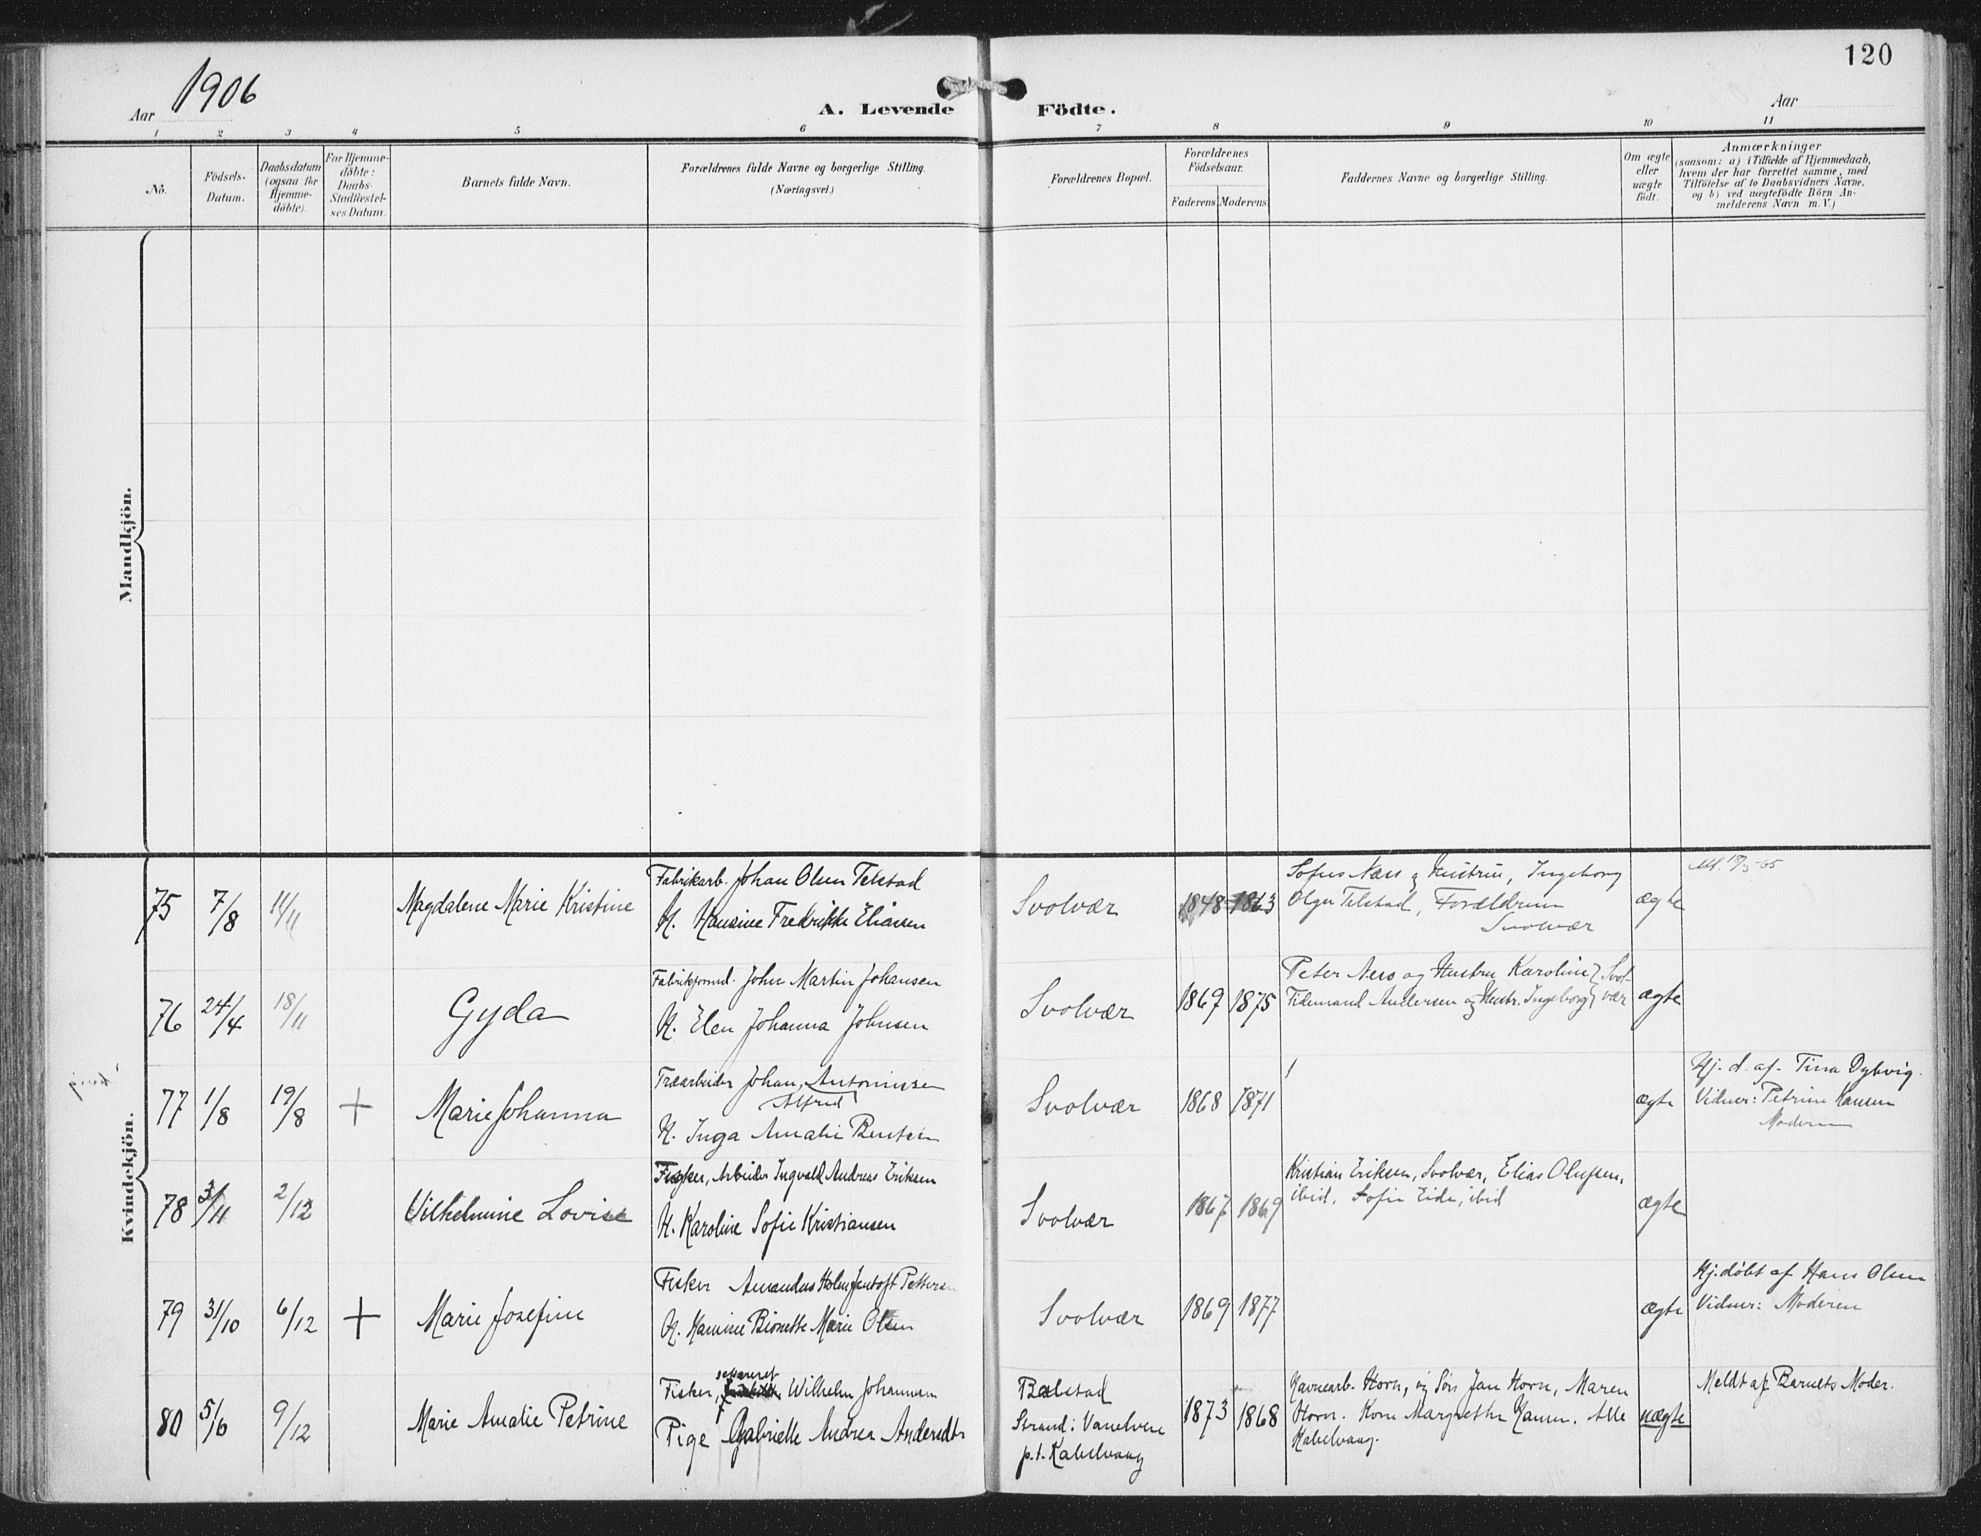 120
Aar 1906
A. Levende Födte.
Aar
1 2 3 4 5 6 7 8 9 10 11
No.
Födsels-
Datum.
Daabsdatum
(ogsaa for
Hjemme-
döbte).
For Hjemme-
döbte:
Daabs-
Stadfæstel-
ses Datum.
Barnets fulde Navn.
Forældrenes fulde Navne og borgerlige Stilling.
(Næringsvei.)
Forældrenes Bopæl.
Forældrenes
Födselsaar.
Faderens. Moderens.
Faddernes Navne og borgerlige Stilling.
Om ægte
eller
uægte
födt.
Anmærkninger
(saasom: a) i Tilfælde af Hjemmedaab,
hvem der har forrettet samme, med
Tilföielse af to Daabsvidners Navne,
og b) ved uægtefödte Börn An-
melderens Navn m. V.)
Mandkjön.
Kvindekjön.
75 7/8 11/11 Magdalene Marie Kristine
Fabrikarb. Johan Olsen Telstad
H. Hansine Fredrikke Eliassen
Svolvær 1848 1863
Sofus Næss og Hustru, Ingeborg
Olga Telstad, Forældrene
Svolvær
ægte
76 24/4 18/11 Gyda
Fabrikformd. John Martin Johansen
H. Elen Johanna Johnsen
Svolvær 1869 1875
Peter Ness og Hustru Karoline } Svol-
Tidemand Andersen og Hustr. Ingeborg } vær
ægte
77 1/8 19/8 + Marie Johanna
Træarbeider Johan, Antoniussen
Alfred
H. Inga Amalie Bentsen
Svolvær 1868 1871
ægte
Hj. d. af. Tina Dybvig.
Vidner: Petrine Hansen
Moderen
78 3/11 2/12 Vilhelmine Lovise
Fisker, Arbeider Ingvald Andreas Eriksen
H. Karoline Sofie Kristiansen
Svolvær 1867 1869
Kristian Eriksen, Svolvær, Elias Olufsen,
ibid, Sofie Eide, ibid
ægte
79 31/10 6/12 + Marie Josefine
Fisker Amandus Holm Jentoft Petters
H. Hansine Marie Olsen
Svolvær 1869 1877
ægte
Hj. döbt af Hans Olsen
Vidner: Moderen
80 5/6 9/12 Marie Amalie Petrine
separeret
Fisker, Wilhelm Johannesen
Pige Gabrielle Andrea Andersdtr
Balstad
Strand: Vanelvene
p.t. Kabelvaag
1873 1868
Havnearb. Horn, og Sön Jan Horn, Maren
Horn. Kone Margrethe Hansen. Alle
Kabelvaag.
uægte
Meldt af Barnets Moder.